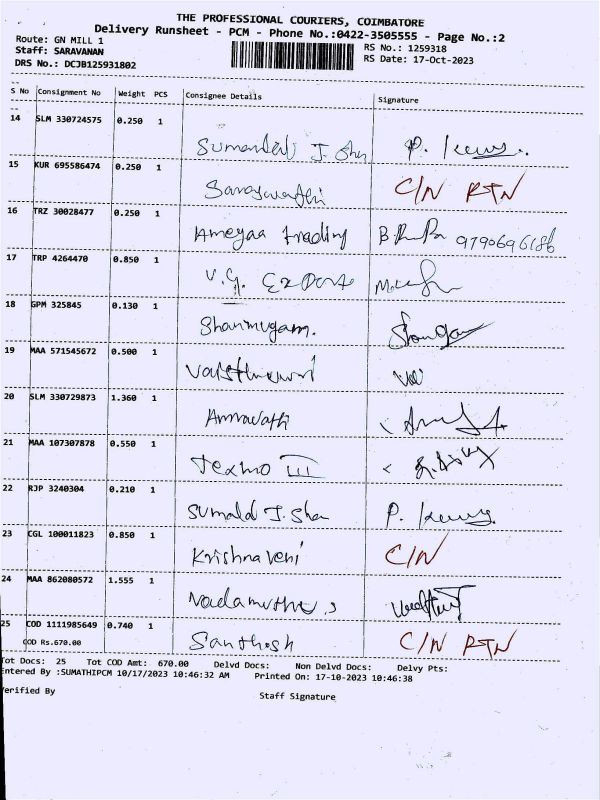 THE PROFESSIONAL COURIERS, COIMBATORE
Delivery Runsheet - PCM - Phone No.:0422-3505555 - Page No.:2
Route: GN MILL 1
RS No.: 1259318
Staff: SARAVANAN
RS Date: 17-Oct-2023
DRS No.: DCJB125931802
S No Consignment No Weight PCS Consignee Details Signature
14 SLM 330724575 0.250 1
Sumandal J. Sha
15 KUR 695586474 0.250 1
Saraswathi C/N RTN
16 TRZ 30028477 0.250 1
Ameyaa trading 9790696186
17 TRP 4264470 0.850 1
V.G. Exports
18 GPM 325845 0.130 1
Shanmugam.
19 MAA 571545672 0.500 1
20 SLM 330729873 1.360 1
Amravathi
21 MAA 107307878 0.550 1
Texmo III
22 RJP 3240304 0.210 1
Sumald J. Sha
23 CGL 100011823 0.850 1
Krishna Veni C/N
24 MAA 862080572 1.555 1
25 COD 1111985649 0.740 1
COD Rs.670.00
Santhosh C/N RTN
Tot Docs: 25 Tot COD Amt: 670.00 Delvd Docs: Non Delvd Docs: Delvy Pts:
Entered By :SUMATHIPCM 10/17/2023 10:46:32 AM Printed On: 17-10-2023 10:46:38
Verified By Staff Signature